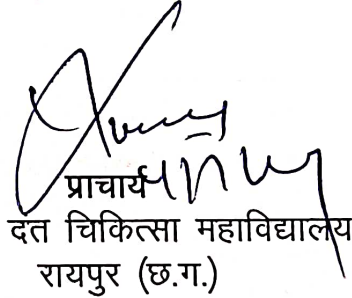 प्राचार्य
दंत चिकित्सा महाविद्यालय
रायपुर (छ.ग.)